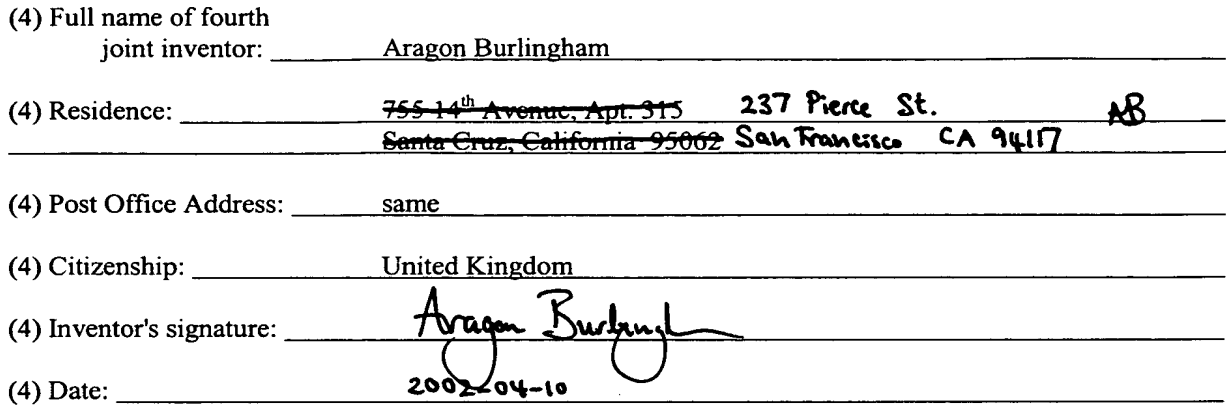 (4) Full name of fourth
joint inventor: Aragon Burlingham
(4) Residence: 755 14th Avenue, Apt. 315 237 Pierce St. AB
Santa Cruz, California 95062 San Francisco CA 94117
(4) Post Office Address: same
(4) Citizenship: United Kingdom
(4) Inventor's signature: Aragon Burlingh
(4) Date: 2002-04-10